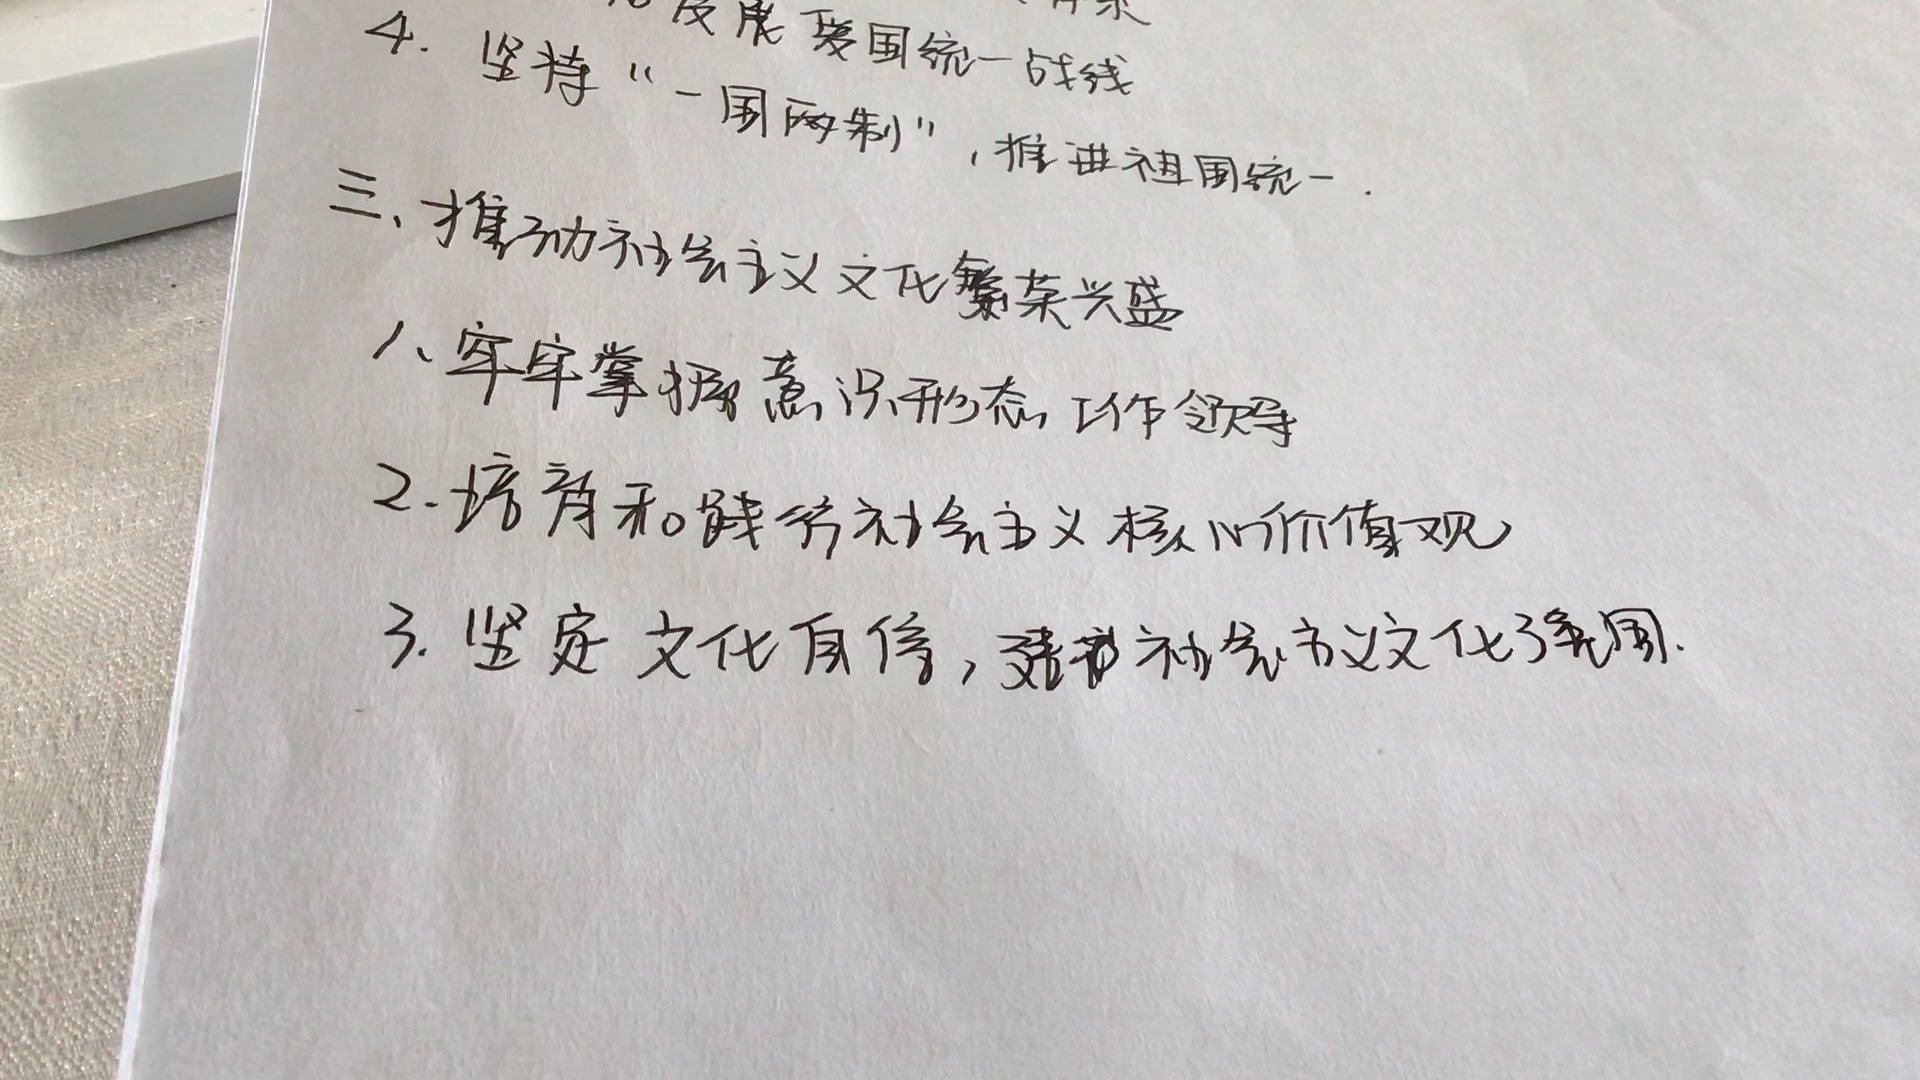 发展爱国统一战线
4. 坚持“一国两制”，推进祖国统一.
三、推动社会主义文化繁荣兴盛
1、牢牢掌握意识形态工作领导
2. 培育和践行社会主义核心价值观
3. 坚定文化自信，建设社会主义文化强国.